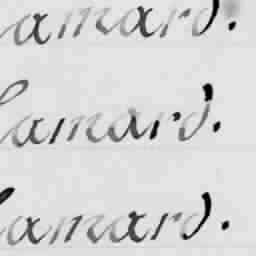 lamard.
lamard.
lamard.